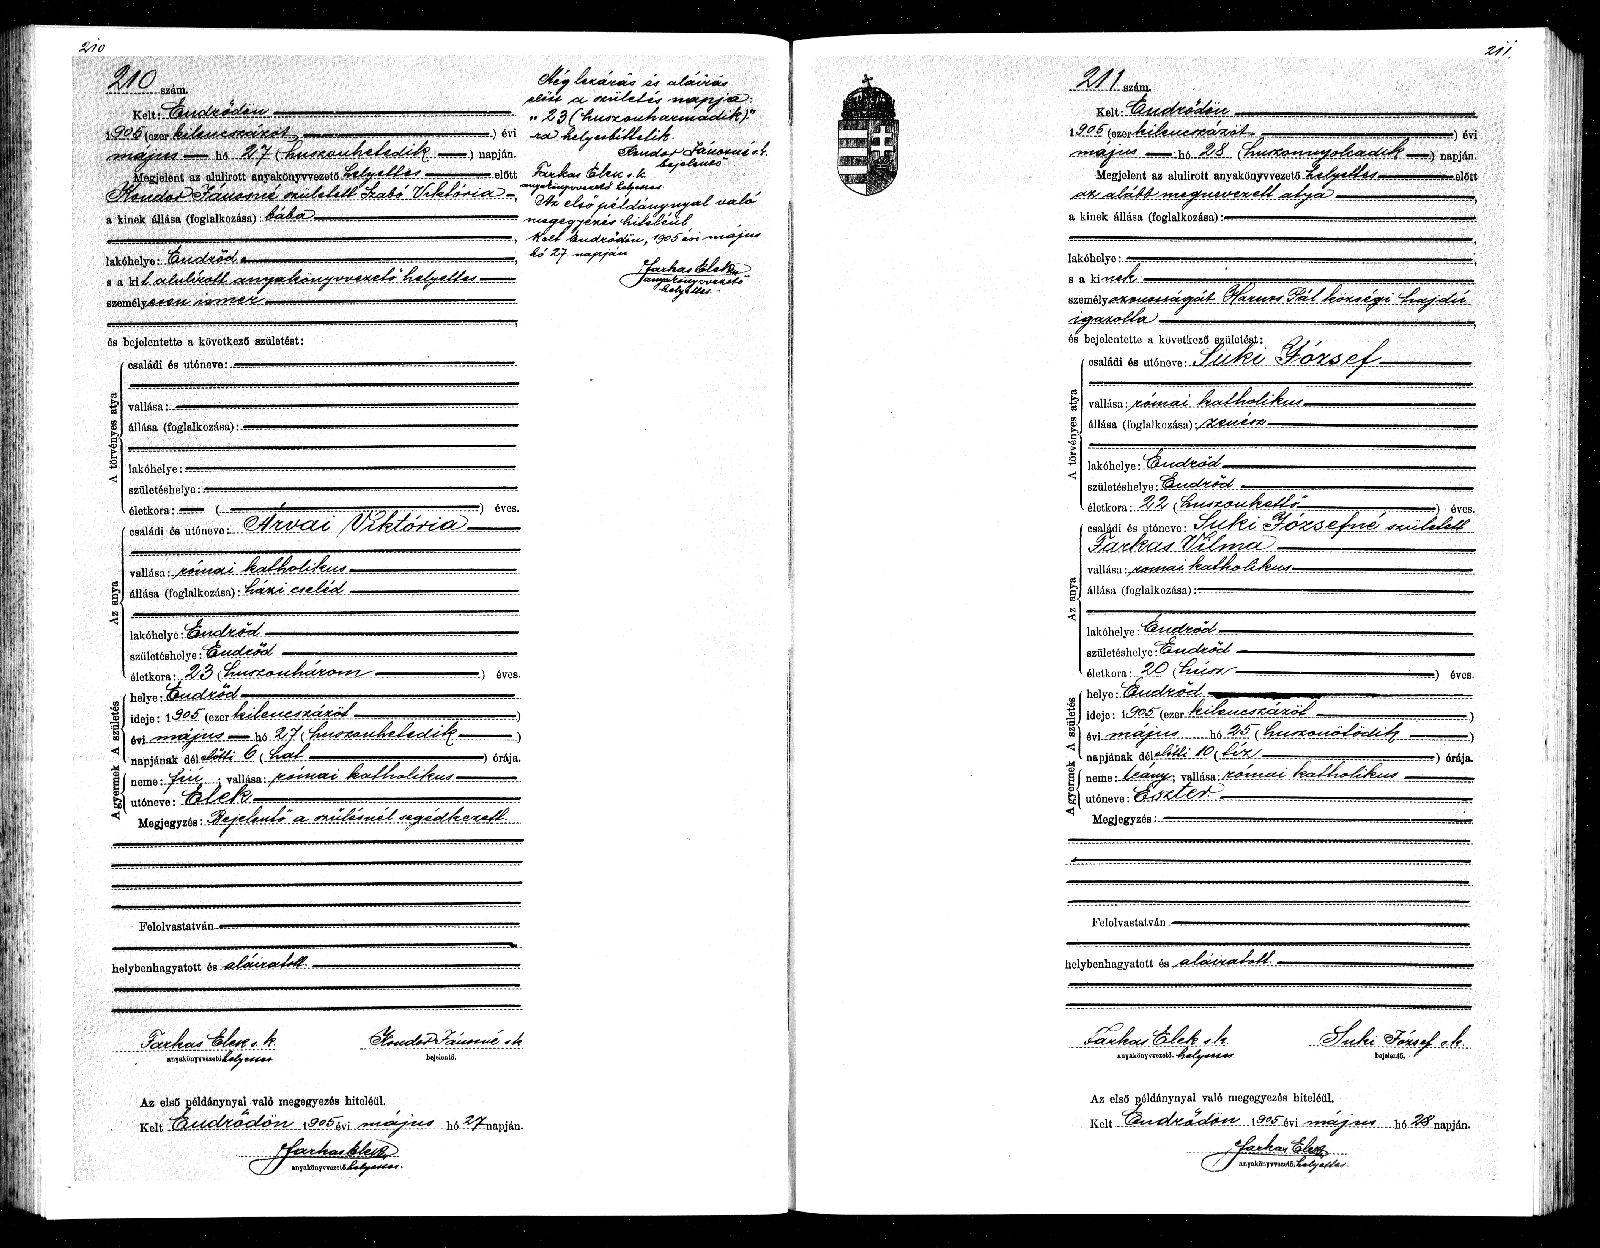 210
210 szám.
Kelt: Endrődön
1905 (ezer kilencszázöt) évi
május hó 27 (huszonhetedik) napján.
Megjelent az alulirott anyakönyvvezető helyettes előtt
Kondor Jánosné született Szabó Viktória
a kinek állása (foglalkozása): bába
lakóhelye: Endrőd
s a kit alulírott anyakönyvvezető helyettes
személyesen ismer
és bejelentette a következő születést:
A törvényes atya
családi és utóneve:
vallása:
állása (foglalkozása):
lakóhelye:
születéshelye:
életkora: ( ) éves.
Az anya
családi és utóneve: Árvai Viktória
vallása: római katholikus
állása (foglalkozása): házi cseléd
lakóhelye: Endrőd
születéshelye: Endrőd
életkora: 23 (huszonhárom) éves.
A születés
helye: Endrőd
ideje: 1905 (ezer kilencszázöt)
évi május hó 27 (huszonhetedik)
napjának dél előtti 6 (hat) órája.
A gyermek
neme: fiú; vallása: római katholikus
utóneve: Elek
Megjegyzés: Bejelentő a szülésnél segédkezett
Felolvastatván
helybenhagyatott és aláiratott
Farkas Elek s.k. Kondor Jánosné s.k.
anyakönyvvezető helyettes bejelentő.
Az első példánynyal való megegyezés hiteléül.
Kelt Endrődön 1905 évi május hó 27 napján.
Farkas Elek
anyakönyvvezető helyettes.
Még lezárás és aláírás
előtt a születés napja
"23 (huszonharmadik)"
ra helyesbíttetik.
Kondor Jánosné s.k.
bejelentő
Farkas Elek s.k.
anyakönyvvezető helyettes.
Az első példánynyal való
megegyezés hiteléül
Kelt Endrődön, 1905 évi május
hó 27 napján
Farkas Elek
anyakönyvvezető
helyettes.
211.
211 szám.
Kelt: Endrődön
1905 (ezer kilencszázöt) évi
május hó 28 (huszonnyolcadik) napján.
Megjelent az alulirott anyakönyvvezető helyettes előtt
az alább megnevezett atya
a kinek állása (foglalkozása):
lakóhelye:
s a kinek
személyazonosságát Pál községi hajdú
igazolta
és bejelentette a következő születést:
A törvényes atya
családi és utóneve: Suki József
vallása: római katholikus
állása (foglalkozása): zenész
lakóhelye: Endrőd
születéshelye: Endrőd
életkora: 22 (huszonkettő) éves.
Az anya
családi és utóneve: Suki Józsefné született
Farkas Vilma
vallása: római katholikus
állása (foglalkozása):
lakóhelye: Endrőd
születéshelye: Endrőd
életkora: 20 (húsz) éves.
A születés
helye: Endrőd
ideje: 1905 (ezer kilencszázöt)
évi május hó 25 (huszonötödik)
napjának dél előtti 10 (tíz) órája.
A gyermek
neme: leány; vallása: római katholikus
utóneve: Eszter
Megjegyzés:
Felolvastatván
helybenhagyatott és aláiratott
Farkas Elek s.k. Suki József s.k.
anyakönyvvezető. helyettes bejelentő.
Az első példánynyal való megegyezés hiteléül.
Kelt Endrődön 1905 évi május hó 28 napján.
Farkas Elek
anyakönyvvezető. helyettes.